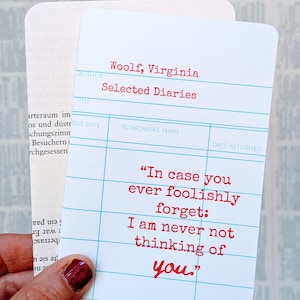 Woolf, Virginia
AUTHOR
Selected Diaries
TITLE
DUE DATE
BORROWER'S NAME
DATE RETURNED
“In case you
ever foolishly
forget:
I am never not
thinking of
you.”
arteraum im
os und düste
Besuchern d